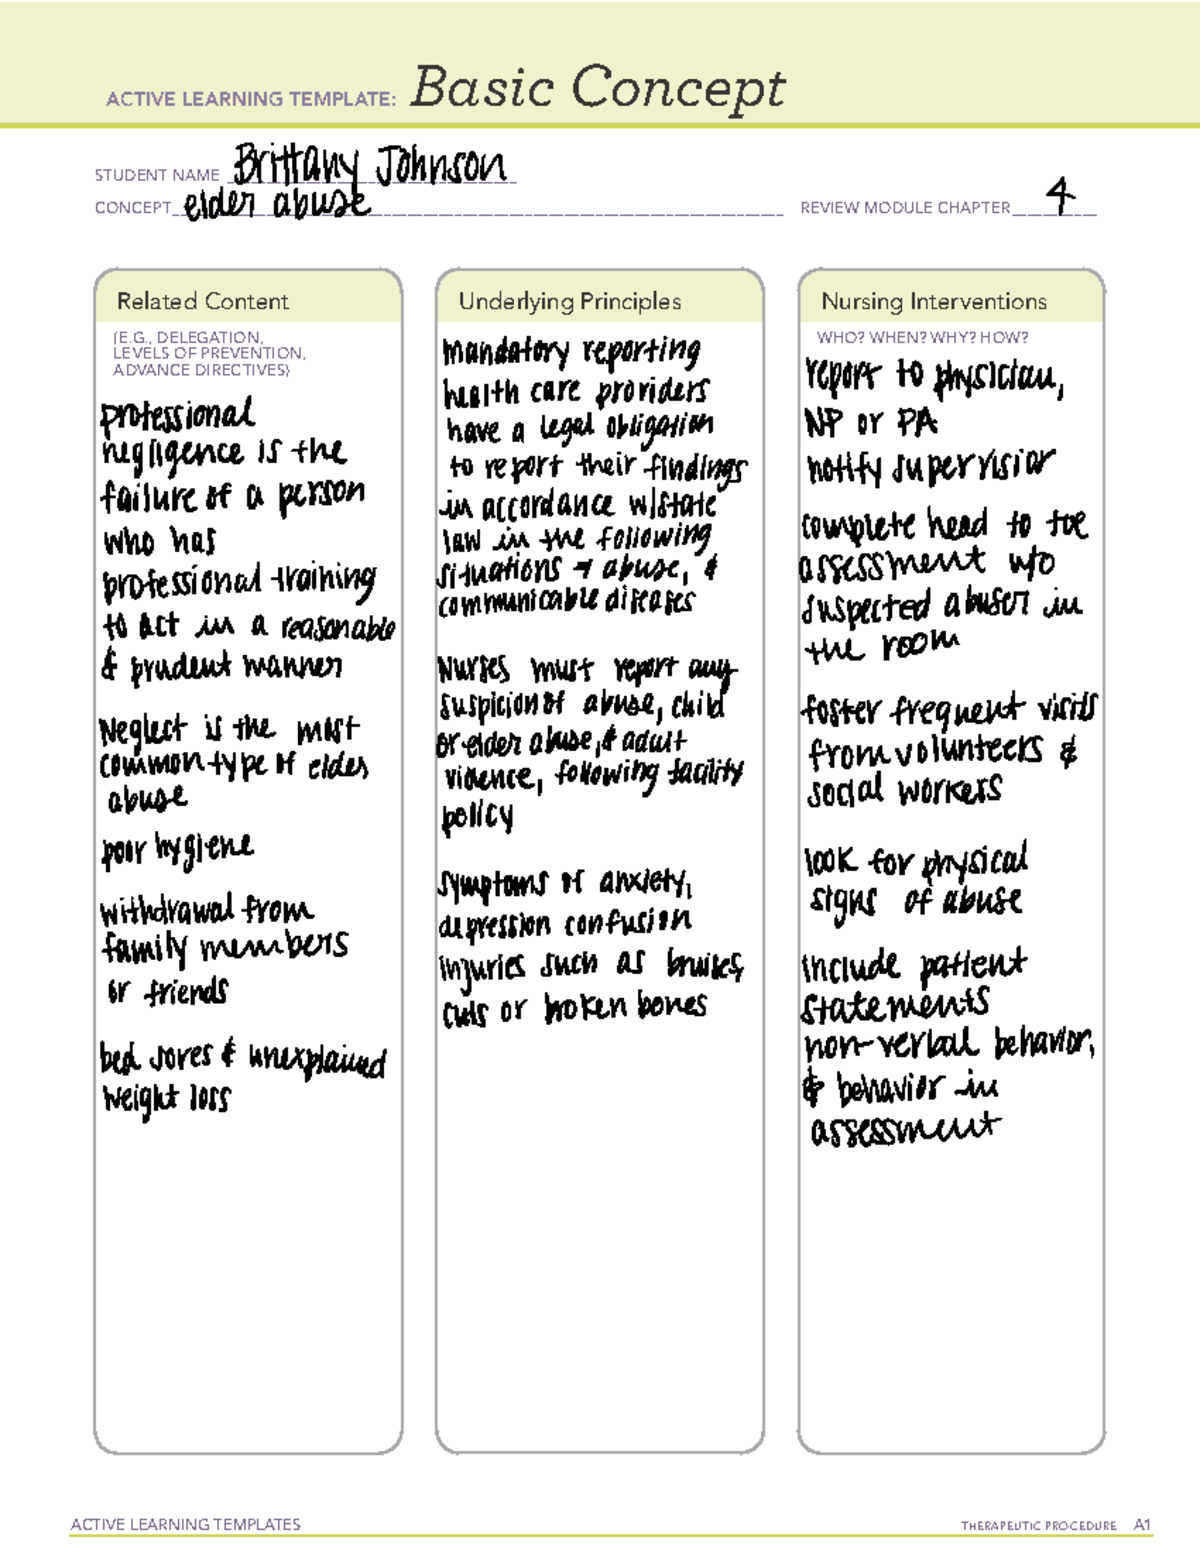 ACTIVE LEARNING TEMPLATE: Basic Concept
STUDENT NAME Brittany Johnson
CONCEPT elder abuse REVIEW MODULE CHAPTER 4
Related Content
(E.G., DELEGATION,
LEVELS OF PREVENTION,
ADVANCE DIRECTIVES)
professional
negligence is the
failure of a person
who has
professional training
to act in a reasonable
& prudent manner
Neglect is the most
common type of elder
abuse
poor hygiene
withdrawal from
family members
or friends
bed sores & unexplained
weight loss
Underlying Principles
mandatory reporting
health care providers
have a legal obligation
to report their findings
in accordance w/state
law in the following
situations → abuse, &
communicable diseases
Nurses must report any
suspicion of abuse, child
or elder abuse, & adult
violence, following facility
policy
symptoms of anxiety,
depression confusion
injuries such as bruises,
cuts or broken bones
Nursing Interventions
WHO? WHEN? WHY? HOW?
report to physician,
NP or PA
notify supervisior
complete head to toe
assessment w/o
suspected abuser in
the room
foster frequent visits
from volunteers &
social workers
look for physical
signs of abuse
include patient
statements
non-verbal behavior,
& behavior in
assessment
ACTIVE LEARNING TEMPLATES
THERAPEUTIC PROCEDURE A1